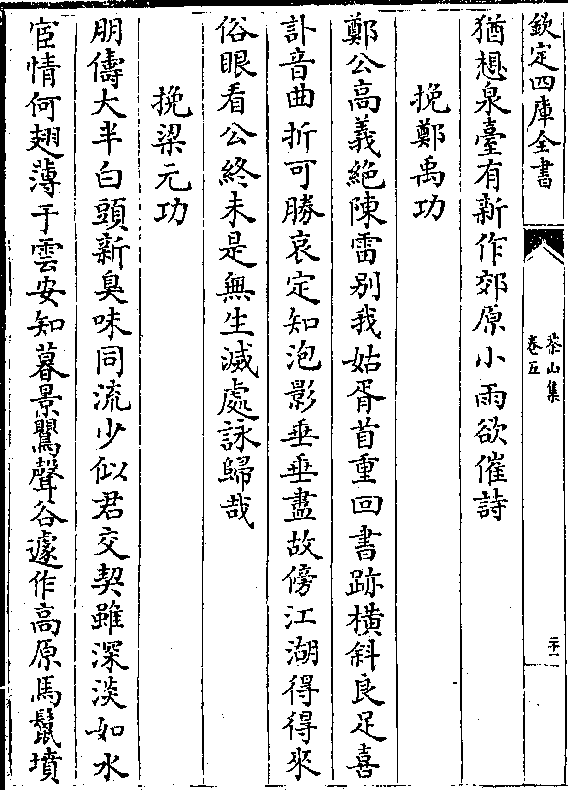 欽定四庫全書
茶山集
卷五
二十一
猶想泉臺有新作郊原小雨欲催詩
挽鄭禹功
鄭公高義絶陳雷别我姑胥首重回書跡横斜良足喜
訃音曲折可勝哀定知泡影垂垂盡故傍江湖得得來
俗眼看公終未是無生滅處詠歸哉
挽梁元功
朋儔大半白頭新臭味同流少似君交契雖深淡如水
宦情何翅薄于雲安知暮景鸎聲谷遽作高原馬鬛墳